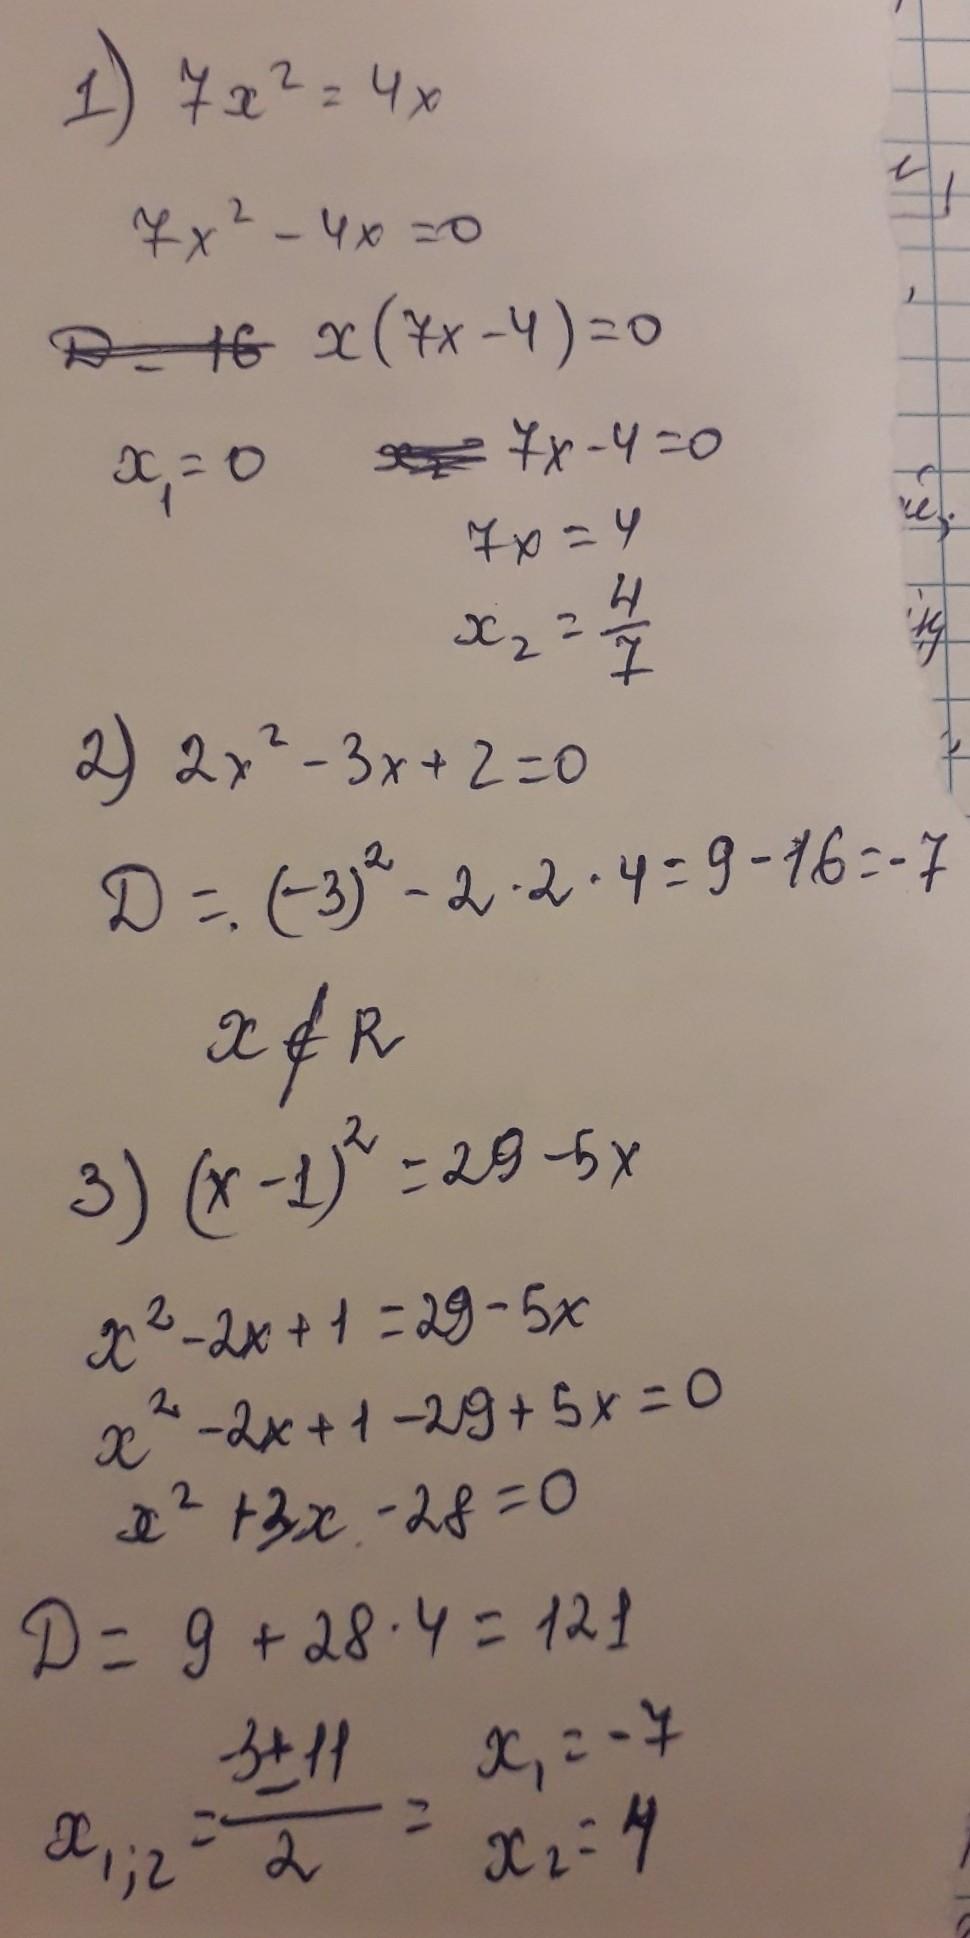 1) 7x² = 4x
7x² - 4x = 0
D = 16 x(7x - 4) = 0
x₁ = 0 7x - 4 = 0
7x = 4
x₂ = 4/7
2) 2x² - 3x + 2 = 0
D = (-3)² - 2 · 2 · 4 = 9 - 16 = -7
x ∉ R
3) (x - 1)² = 29 - 5x
x² - 2x + 1 = 29 - 5x
x² - 2x + 1 - 29 + 5x = 0
x² + 3x - 28 = 0
D = 9 + 28 · 4 = 121
x₁;₂ = (-3 ± 11)/2 = x₁ = -7
x₂ = 4